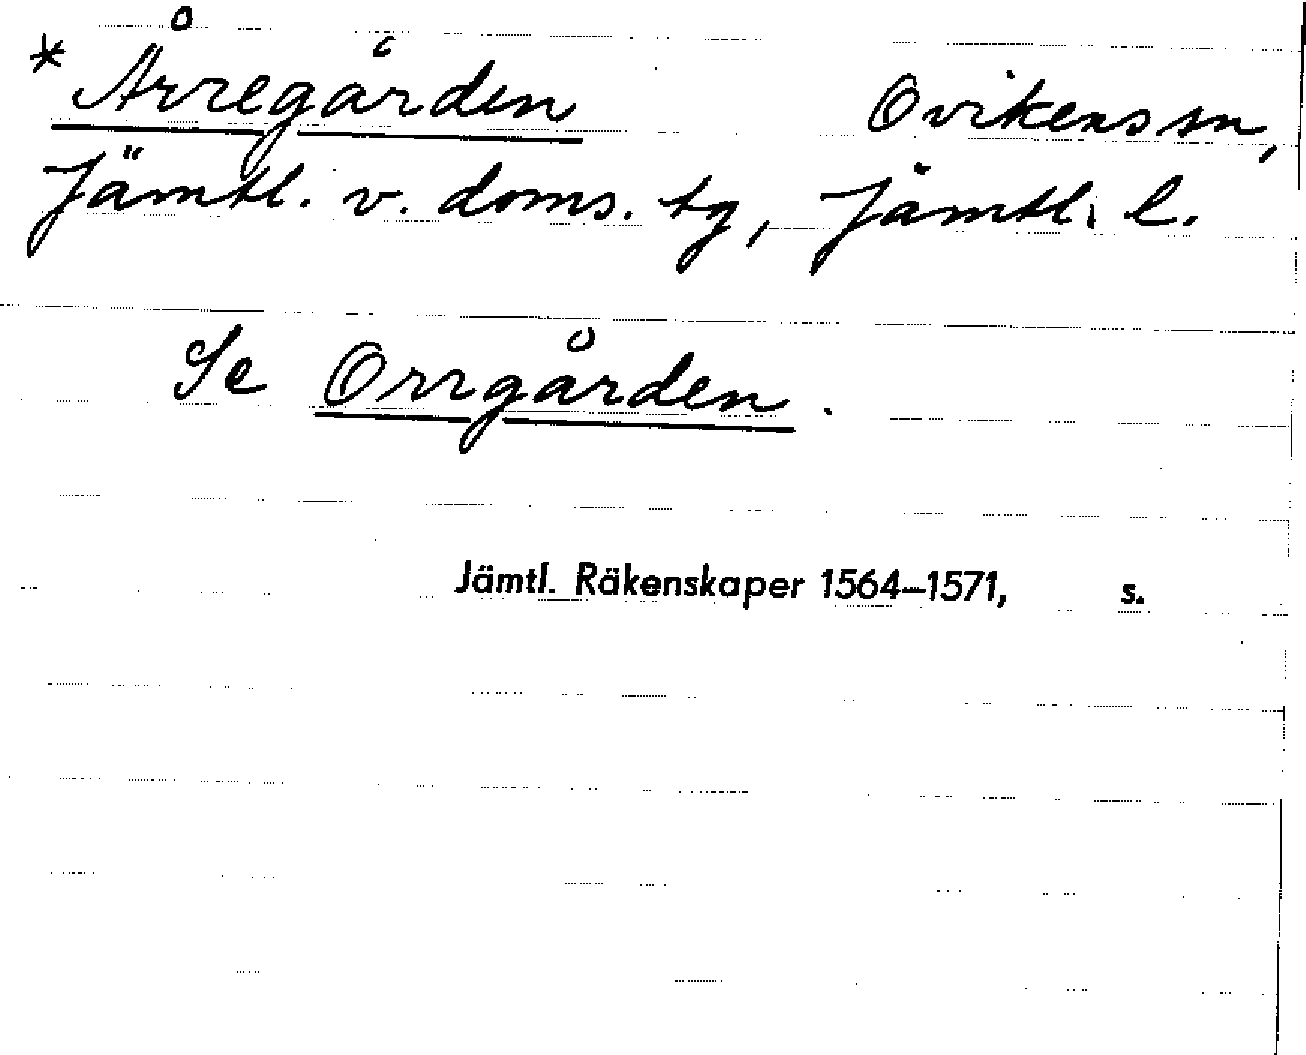 * Årregården Ovikens sn,
Jämtl. v. doms. tg, Jämtl. l.
Se Orrgården.
Jämtl. Räkenskaper 1564–1571, s.